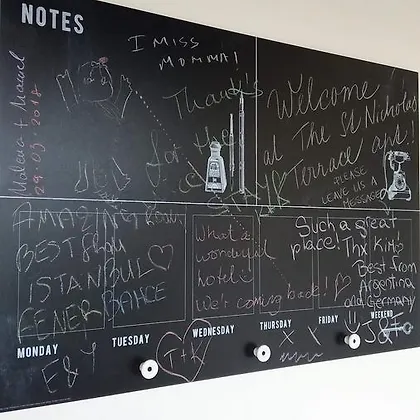 NOTES
I MISS
MOMMA!
Malena + Manuel
29.03.2018
Thanks
for the
STAY
Welcome
at The St Nicholas
Terrace apt.
PLEASE
LEAVE US A
MESSAGE
AMAZING
BEST FROM
ISTANBUL ♡
FENERBAHCE
What a
wonderful
hotel
We're coming back!
Such a great
place!
Thx Kim
Best from
Argentina
and Germany
J&F
MONDAY
TUESDAY
WEDNESDAY
THURSDAY
FRIDAY
WEEKEND
E&Y
T+K